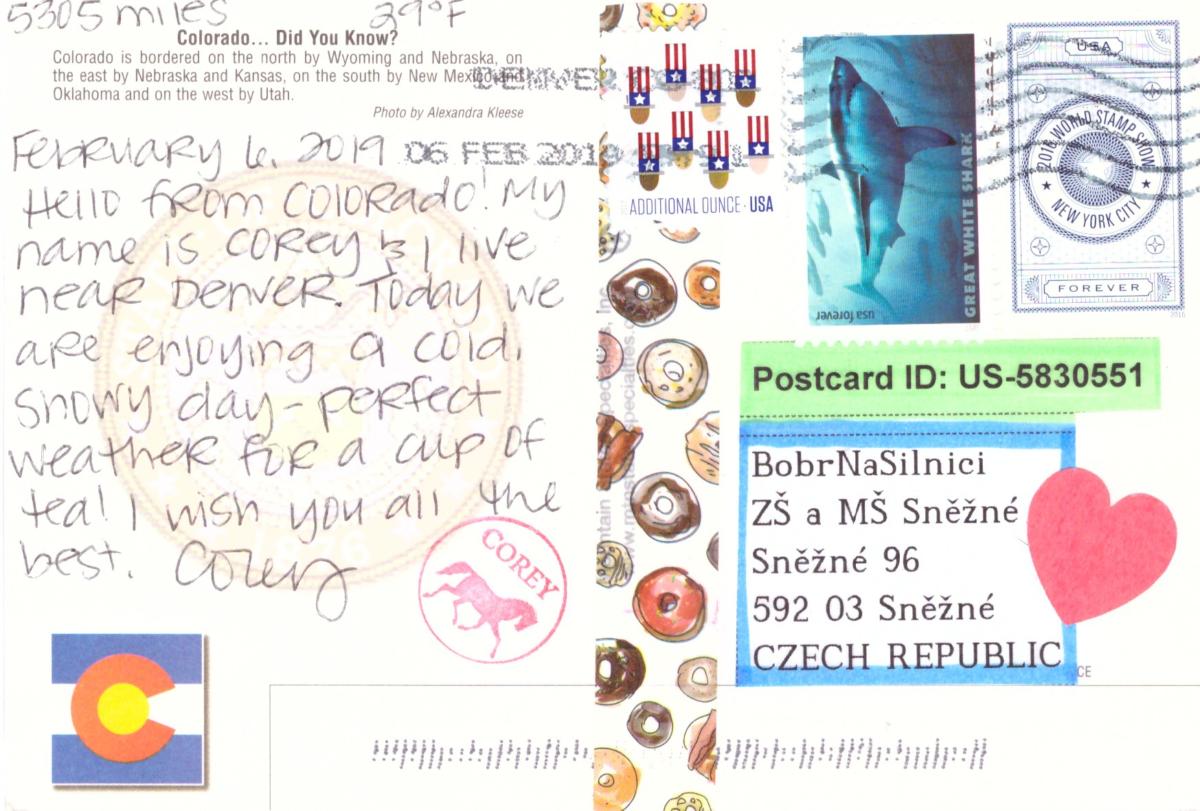 5305 miles 29°F
Colorado... Did You Know?
Colorado is bordered on the north by Wyoming and Nebraska, on
the east by Nebraska and Kansas, on the south by New Mexico and
Oklahoma and on the west by Utah.
Photo by Alexandra Kleese
DENVER
February 6, 2019
06 FEB 2019
Hello from Colorado! My
name is Corey & I live
near Denver. Today we
are enjoying a cold,
snowy day - perfect
weather for a cup of
tea! I wish you all the
best. Corey
COREY
1876
ADDITIONAL OUNCE · USA
GREAT WHITE SHARK
usa forever
USA
2016 WORLD STAMP SHOW
NEW YORK CITY
FOREVER
2016
Postcard ID: US-5830551
BobrNaSilnici
ZŠ a MŠ Sněžné
Sněžné 96
592 03 Sněžné
CZECH REPUBLIC